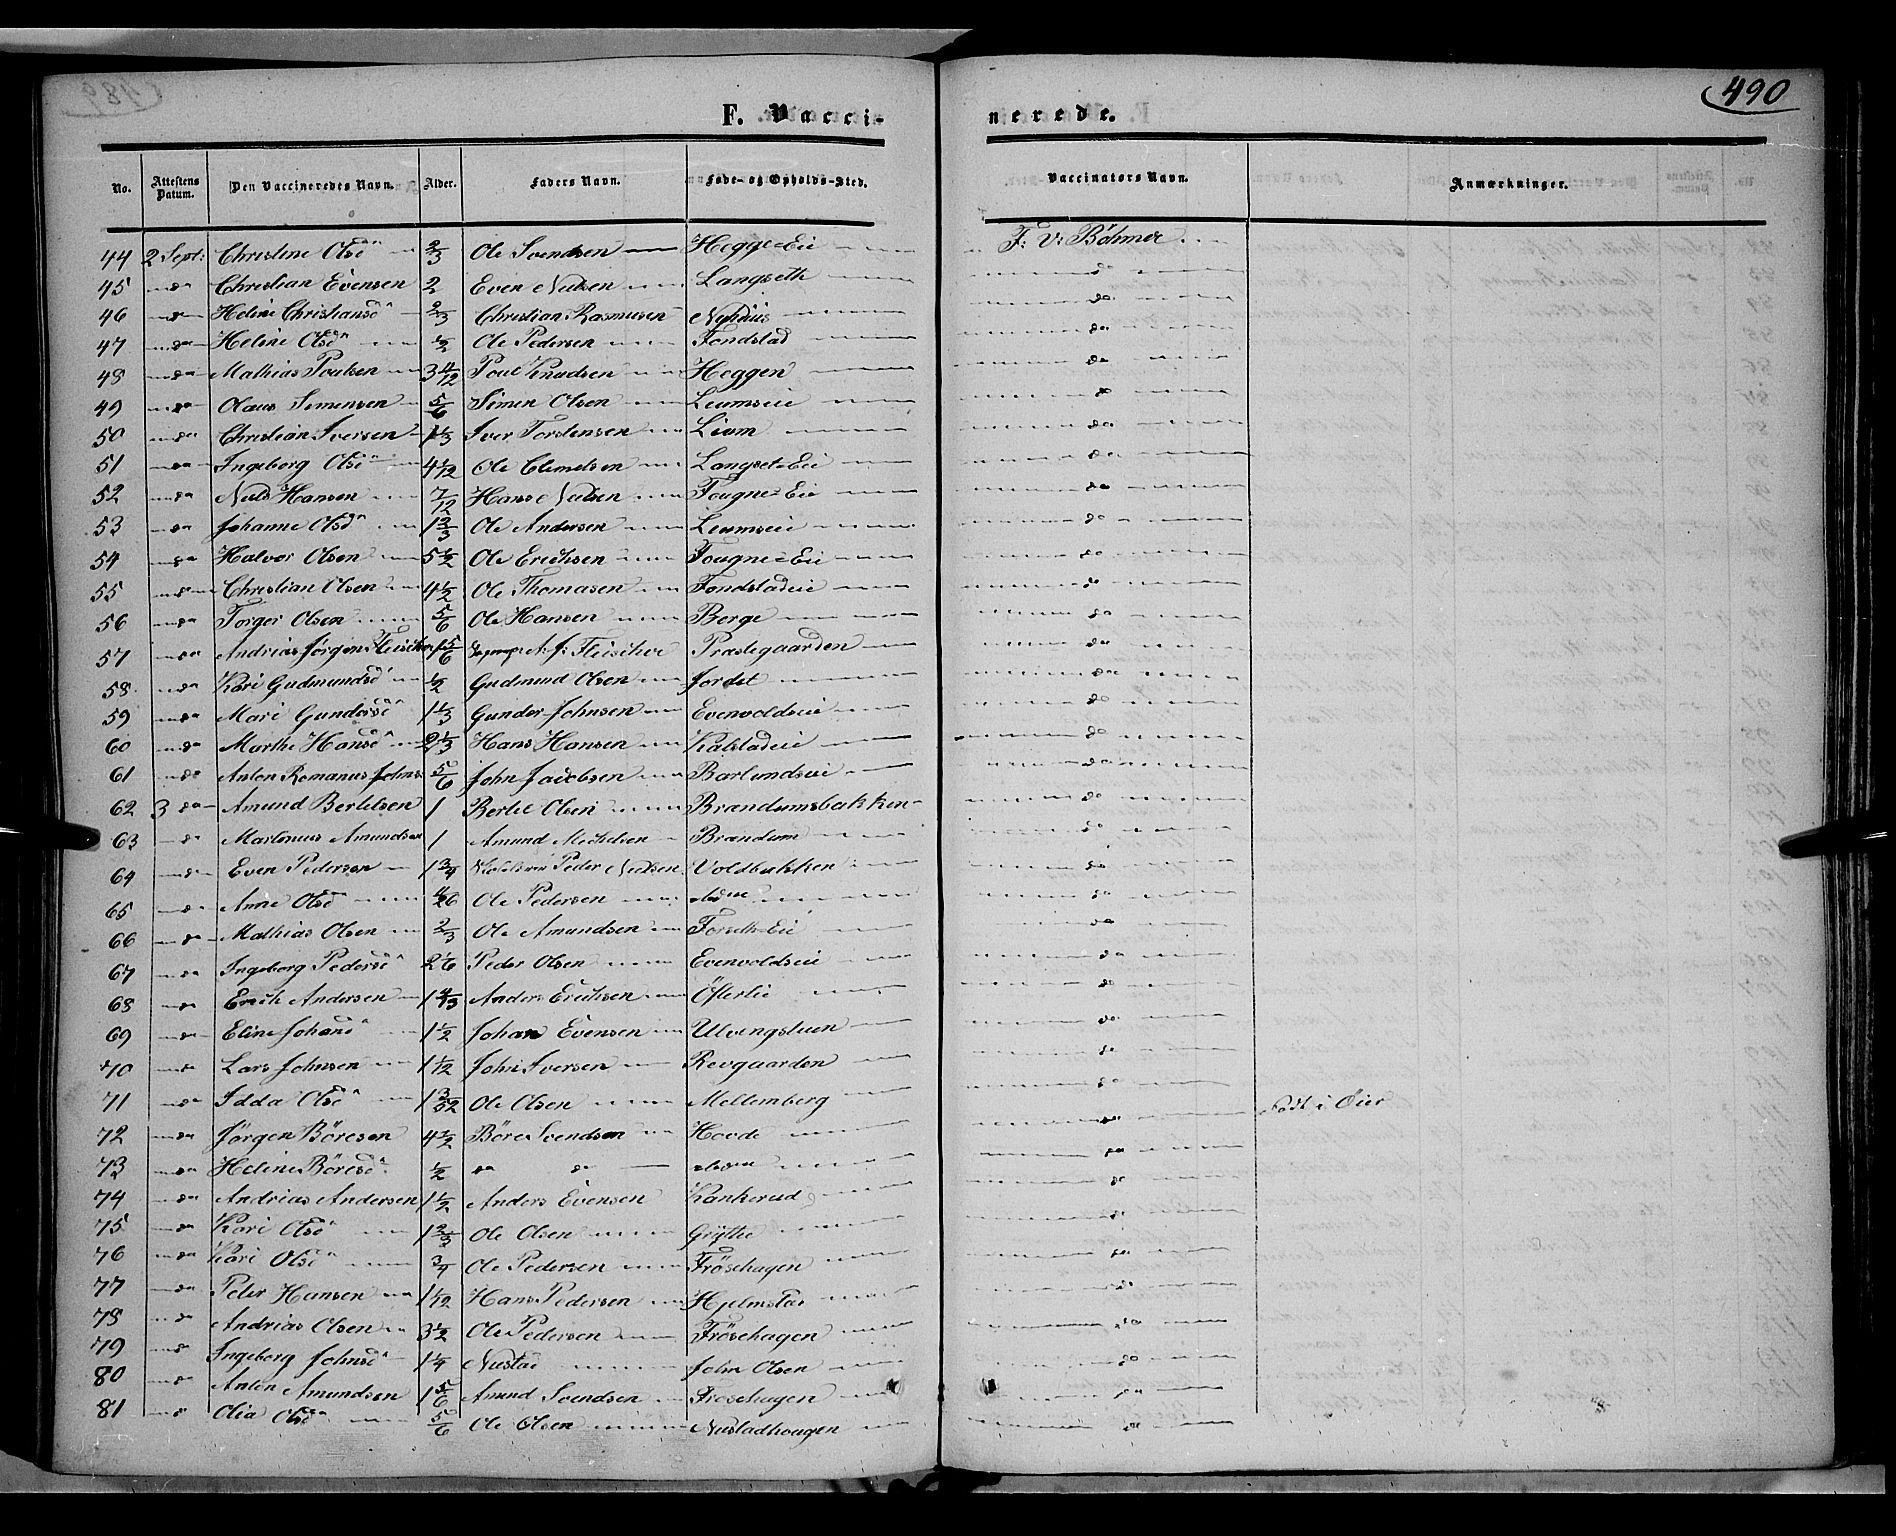 490
F. Vacci- nerede.
No. Attestens Datum. Den Vaccineredes Navn. Alder. Faders Navn. Føde- og Opholds-Sted. Vaccinators Navn. Anmærkninger.
44 2 Sept: Christine Olsd 2/3 Ole Svendsen Hegge=Eie F: V: Böhmer
45 do Christian Evensen 2 Even Nielsen Langseth do
46 do Heline Christiansd 2/3 Christian Rasmusen do
47 do Heline Olsd 1/2 Ole Pedersen Fondstad do
48 do Mathias Poulsen 3 4/12 Poul Knudsen Heggen do
49 do Olaus Simensen 5/6 Simen Olsen Liumseie do
50 do Christian Iversen 1 1/3 Iver Torstensen Lium do
51 do Ingeborg Olsd 4 1/12 Ole Clemetsen Langset=Eie do
52 do Niels Hansen 7/12 Hans Nielsen Fougne=Eie do
53 do Johanne Olsd 1 2/3 Ole Andersen Liumseie do
54 do Halvor Olsen 5 1/2 Ole Erichsen Fougne=Eie do
55 do Christian Olsen 4 1/2 Ole Thomasen Fondstadeie do
56 do Torger Olsen 5/6 Ole Hansen Berge do
57 do Andrias Jörgen Fleischer 1 5/6 A. J: Fleischer Præstegaarden do
58 do Kari Gudmundsd 1/2 Gudmund Olsen Jordet do
59 do Mari Gundersd 1 1/3 Gunder Johnsen Evenvoldseie do
60 do Marthe Hansd 2 1/3 Hans Hansen Kalstadeie do
61 do Anton Romanus Johns: 5/6 John Jacobsen Barlundseie do
62 3 do Amund Bertelsen 1 Bertel Olsen Brandumsbakken do
63 do Martinius Amundsen 1 Amund Mechelsen Brandum do
64 do Even Pedersen 1 3/4 Peder Nielsen Voldbakken do
65 do Anne Olsd Ole Pedersen do
66 do Mathias Olsen 2/3 Ole Amundsen Forseth=Eie do
67 do Ingeborg Pedersd 2 1/6 Peder Olsen Evenvoldseie do
68 do Erich Andersen Anders Erichsen Öfterlie do
69 do Eline Johansd 1 1/2 Johan Evensen Ulvengstuen do
70 do Lars Johnsen 1 1/12 John Iversen Revgaarden do
71 do Idda Olsd 1 3/52 Ole Olsen Mellemberg do Født i Øier
72 do Jørgen Böresen 4 1/2 Böre Svendsen Hovde do
73 do Heline Böresd 1/2 do do do
74 do Andrias Andersen 1 1/2 Anders Evensen Kankerud do
75 do Kari Olsd 1 2/3 Ole Olsen Grytte do
76 do Kari Olsd 3/4 Ole Pedersen Fröschagen do
77 do Peter Hansen 1 1/12 Hans Pedersen Hjelmstad do
78 do Andrias Olsen 3 1/2 Ole Pedersen Fröschagen do
79 do Ingeborg Johnsd 1 1/4 Nustad John Olsen do
80 do Anton Amundsen 1 5/6 Amund Svendsen Froschagen do
81 do Olia Olsd 5/6 Ole Olsen Nustadhougen do